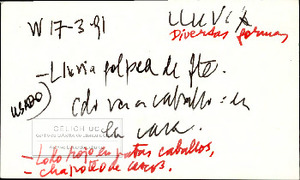 W 17-3-91
LLUVIA
Diversas formas
- Lluvia golpea de fte.
cdo va a caballo: en
la cara.
USADO
CELICH UC
- Lodo rojo en patas caballos,
- chapoteo de cascos.